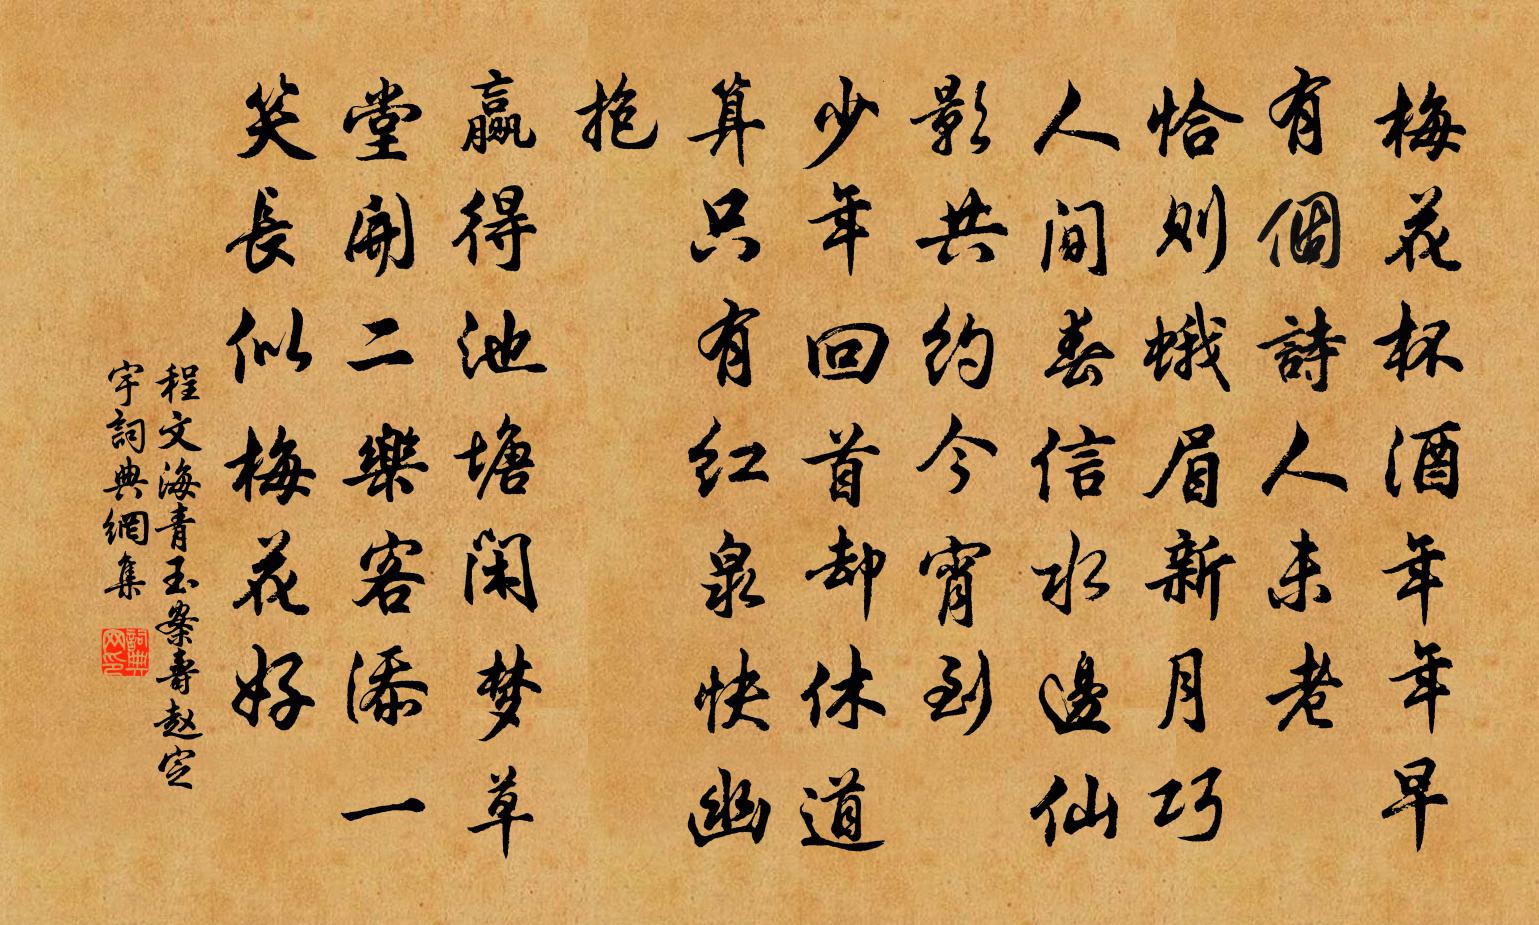 梅花杯酒年年早
有個詩人未老
恰則蛾眉新月巧
人间春信水邊仙
影共約今宵到
少年回首却休道
算只有红泉快幽
抱
赢得池塘闲梦草
堂開二樂客添一
笑長似梅花好
程文海青玉案壽赵定
宇詞典網集
詞典网印